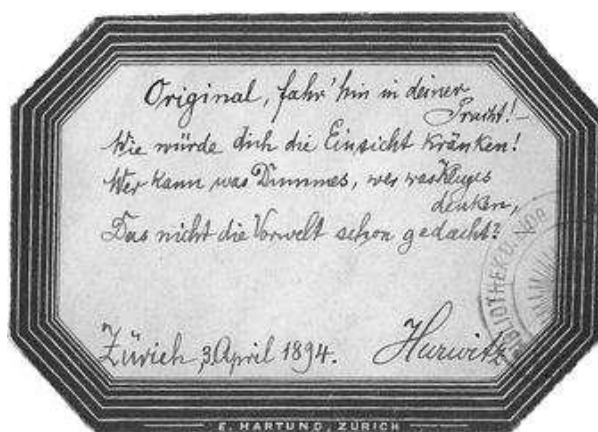 Original, fahr' hin in deiner
Pracht! –
Wie würde dich die Einsicht kränken!
Wer kann was Dummes, wer was Kluges
denken,
Das nicht die Vorwelt schon gedacht?
Zürich, 3 April 1894. Hurwitz
E. HARTUNG, ZÜRICH